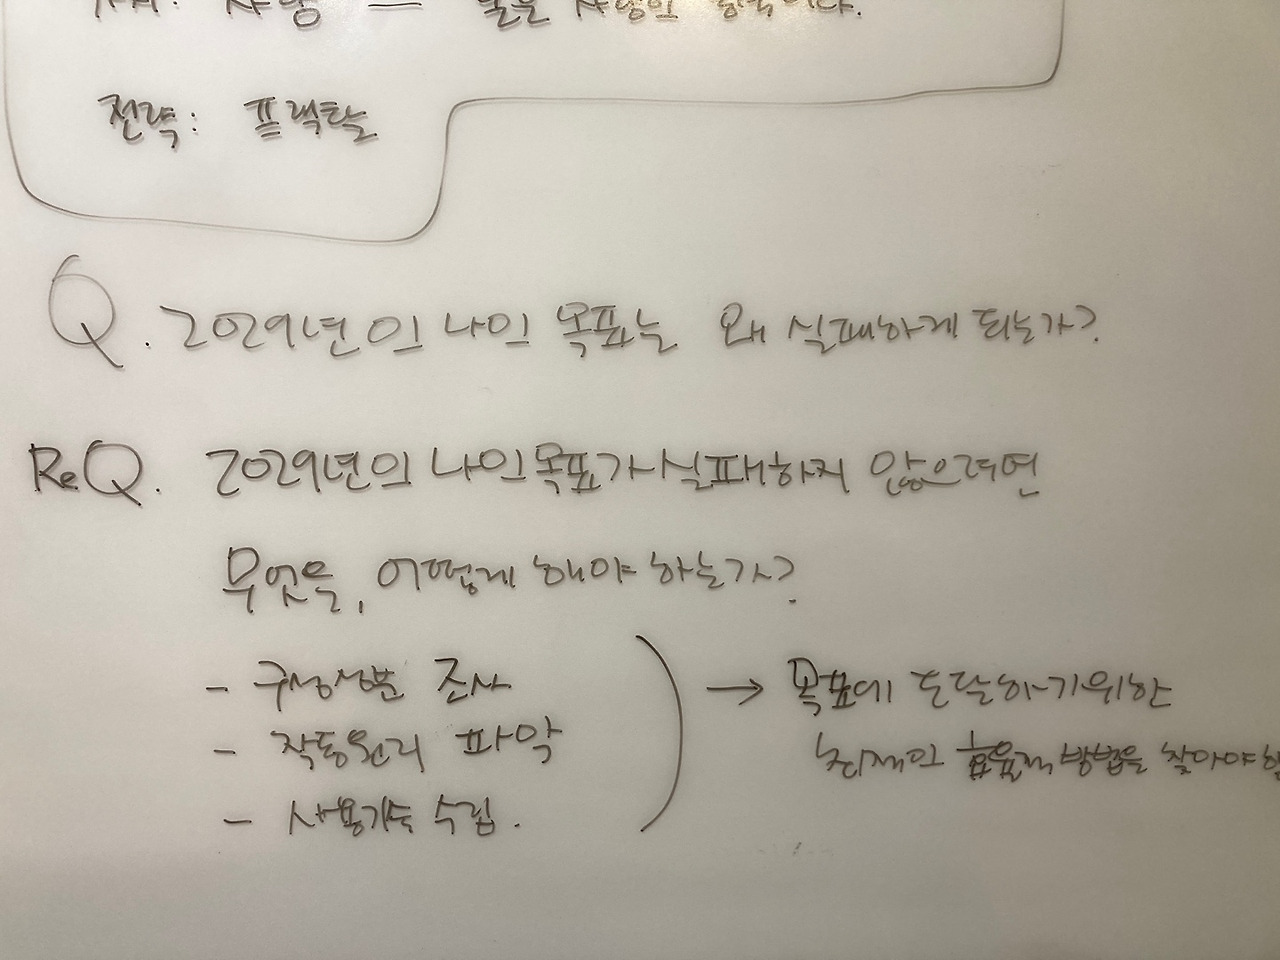 전략: 프랙탈
Q. 2029년의 나의 목표는 왜 실패하게 되는가?
ReQ. 2029년의 나의 목표가 실패하지 않으려면
무엇을, 어떻게 해야 하는가?
- 구성성분 조사
- 작동원리 파악 → 목표에 도달하기위한
- 사용기술 수립. 현재의 효율적 방법을 찾아야